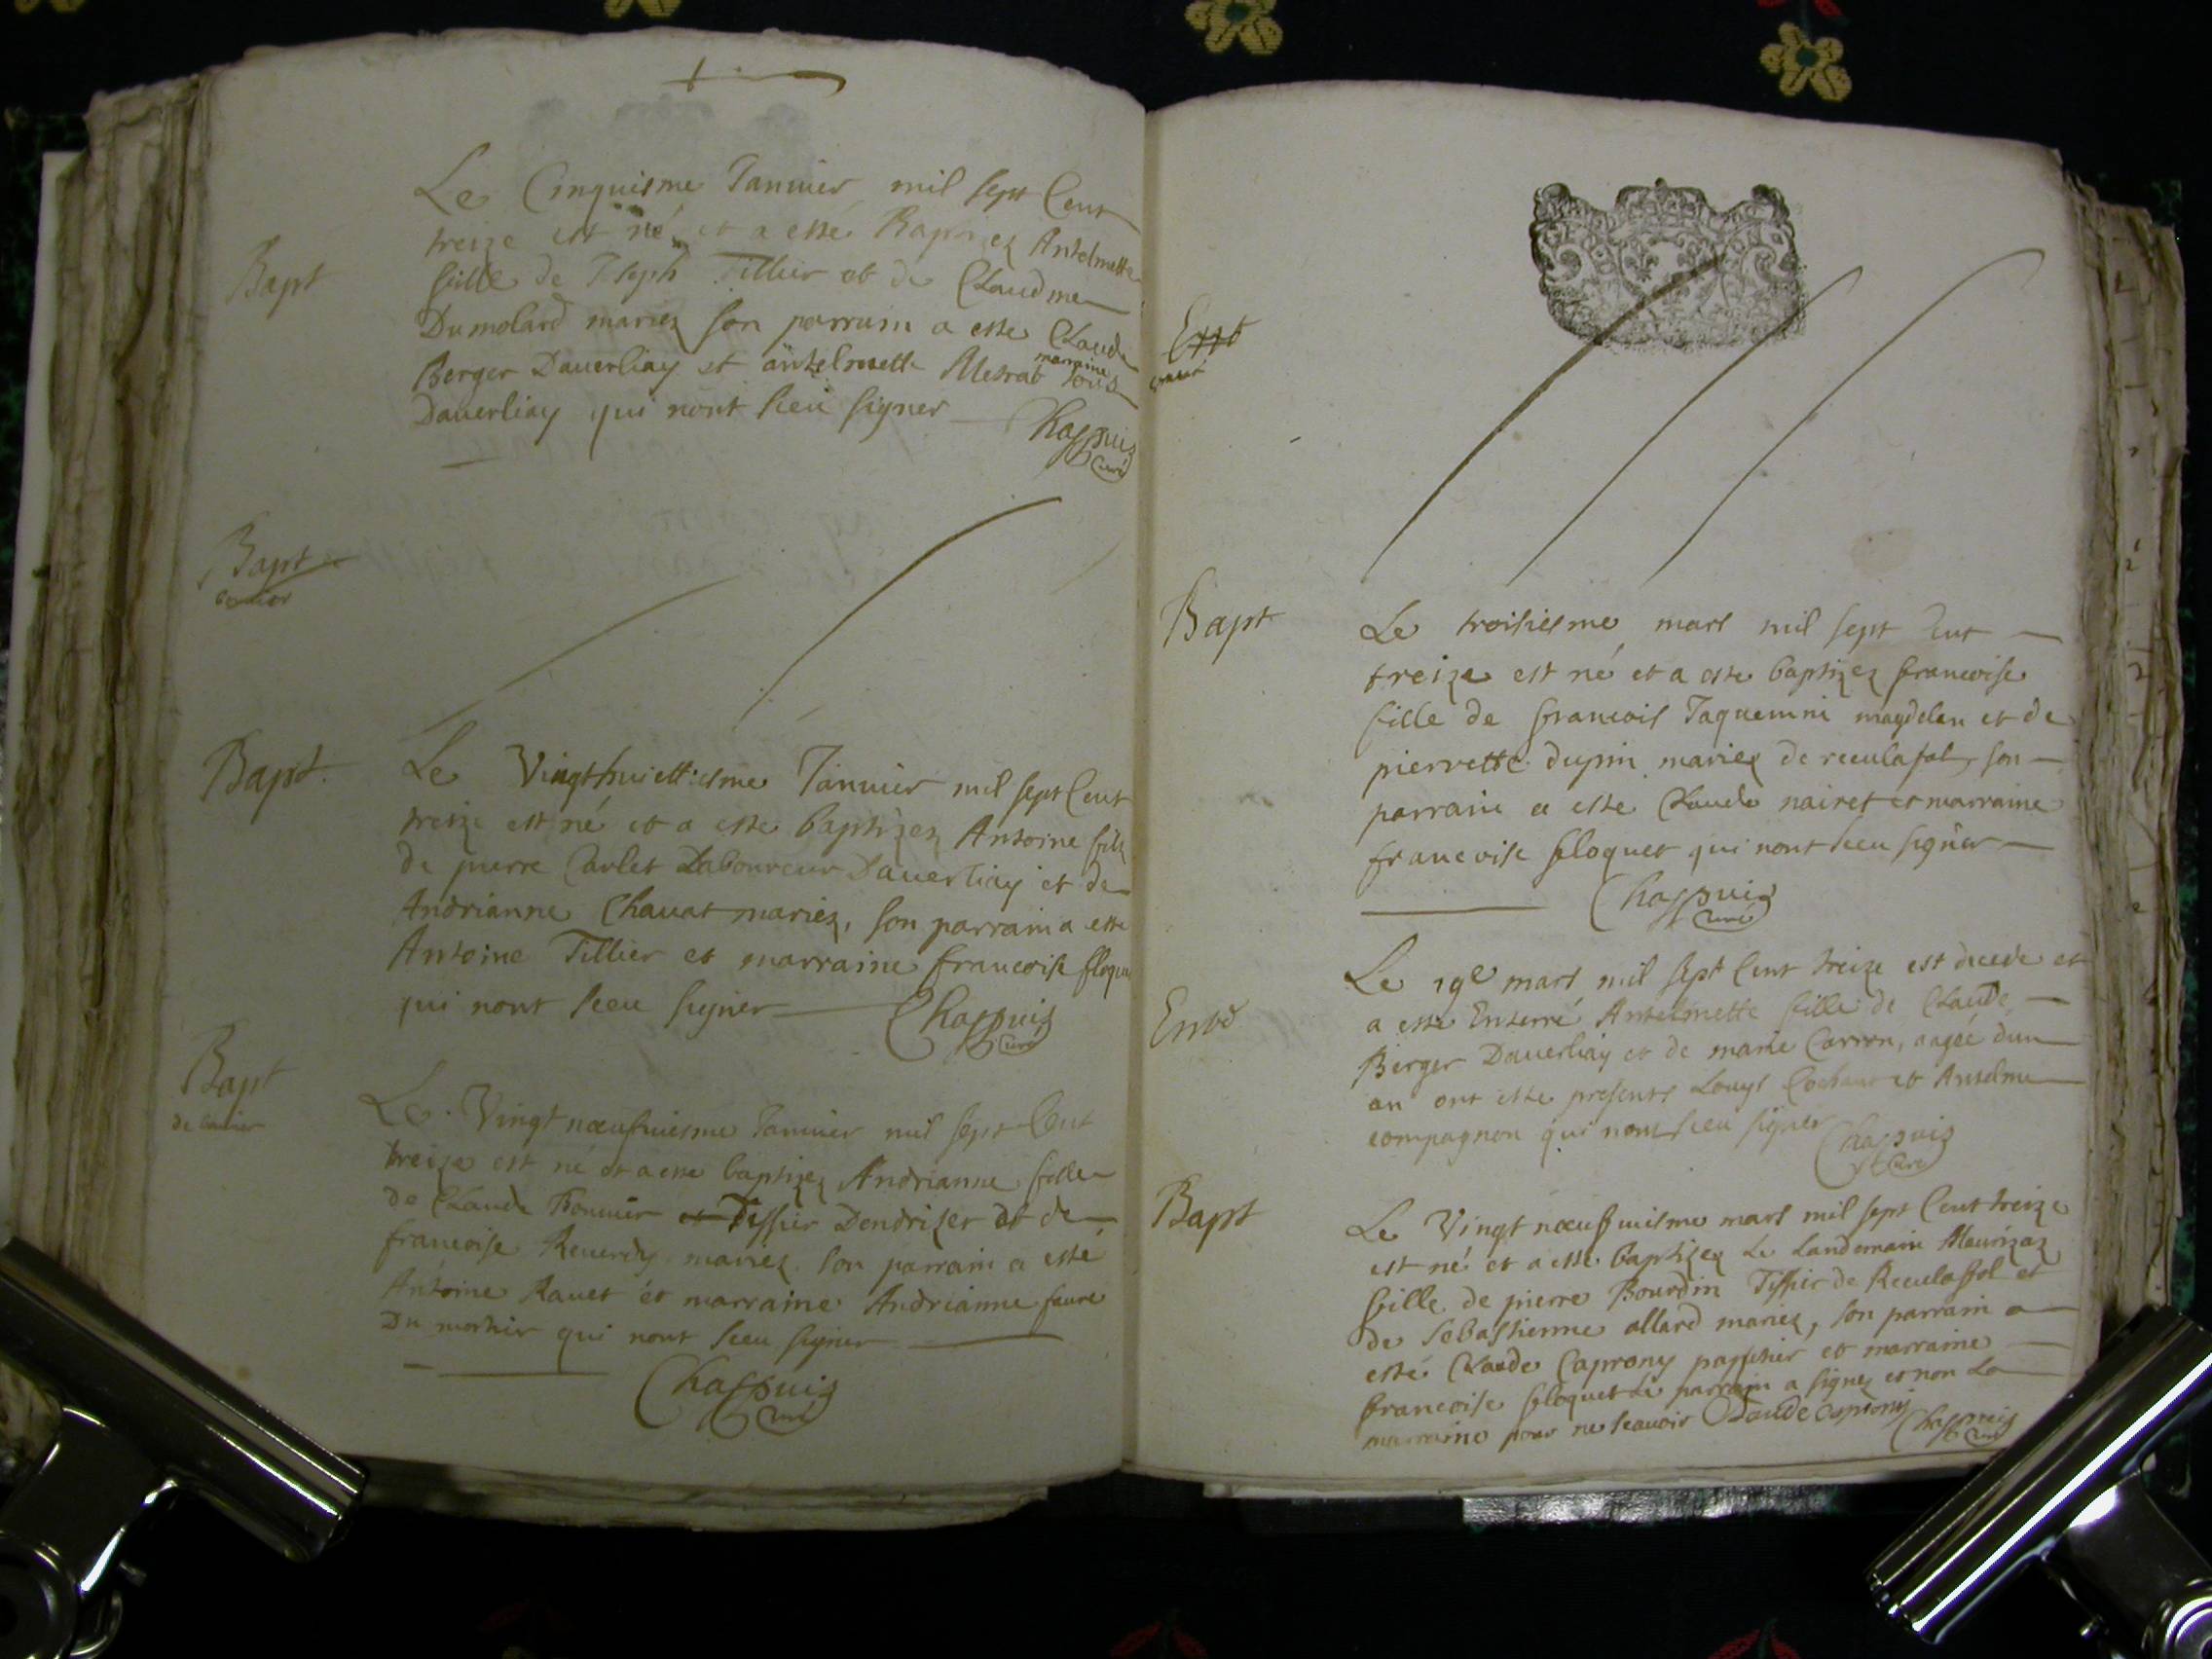 Bapt
Le Cinquisme Januier mil sept Cent
treize est né et a esté Baptizez Antelmette
fille de Joseph Tillier et de Claudine
Dumolard mariez son parrain a este Claude
Berger Dauerliay et antelmette marraine tous
Dauerliay qui nont sceu signer
Chappuis
Curé
Bapt
Bapt.
Le Vingthuictiesme Januier mil sept Cent
treize est né et a este baptizez Antoine filz
de pierre Carlet Laboureur Dauerliay et de
Andrianne Chauat mariez, son parrain a este
Antoine Tillier et marraine francoise floquet
qui nont sceu signer
Chappuis
Curé
Bapt
de Januier
Le Vingt nœufuiesme Januier mil sept Cent
treize est né et a este baptizez Andrianne fille
de Claude et Tissier Dendrizet et de
francoise Reuerdy mariez son parrain a esté
Antoine Rauet et marraine Andrianne faure
Du mortier qui nont sceu signer
Chappuis
Curé
Bapt
Le troisiesme mars mil sept Cent
treize est né et a este baptizez francoise
fille de francois Jaquemin maydelan et de
pierrette dupin mariez de reculafol, son
parrain a este Claude nairet et marraine
francoise floquet qui nont sceu signer
Chappuis
Curé
Enter
Le 19e mars mil sept Cent treize est decede et
a este Enterré Antelmette fille de Claude
Berger Dauerliay et de marie Carron, aagée dun
an ont este presents Louys Cochanet et Anselme
compagnon qui nont sceu signer
Chappuis
Curé
Bapt
Le Vingt nœufuiesme mars mil sept Cent treize
est né et a esté baptizez Le Landemain Maurizaz
fille de pierre Bourdin Tissier de Reculaffol et
de Sebastienne allard mariez, son parrain a
esté Claude Caprony papetier et marraine
francoise floquet Le parrain a signez et non La
marraine pour ne scauoir Claude Caprony
Chappuis
Curé